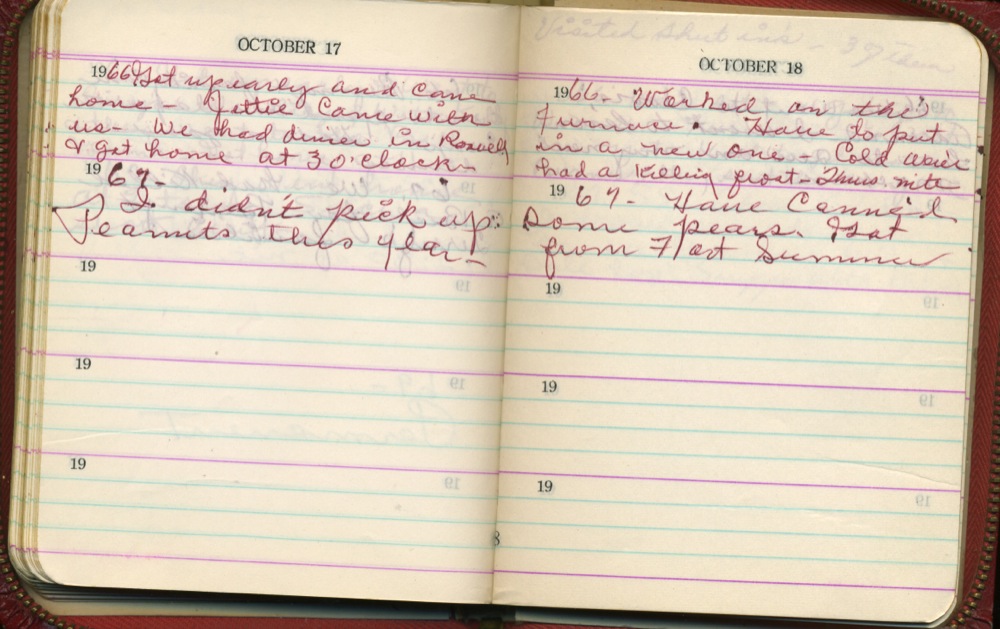 OCTOBER 17
1966 Got up early and came
home - Jettie Came with
us - We had dinner in Roswell
& got home at 3 o'clock -
1967 -
I didn't pick up
Peanuts this year -
19
19
19
Visited Shut ins - 37
OCTOBER 18
1966 - Worked on the
Furnace. Have to put
in a new one - Cold wave
had a Killing frost - Thurs nite
1967 - Have Cann'd
some pears. I Got
from Flat Summer
19
19
19
8